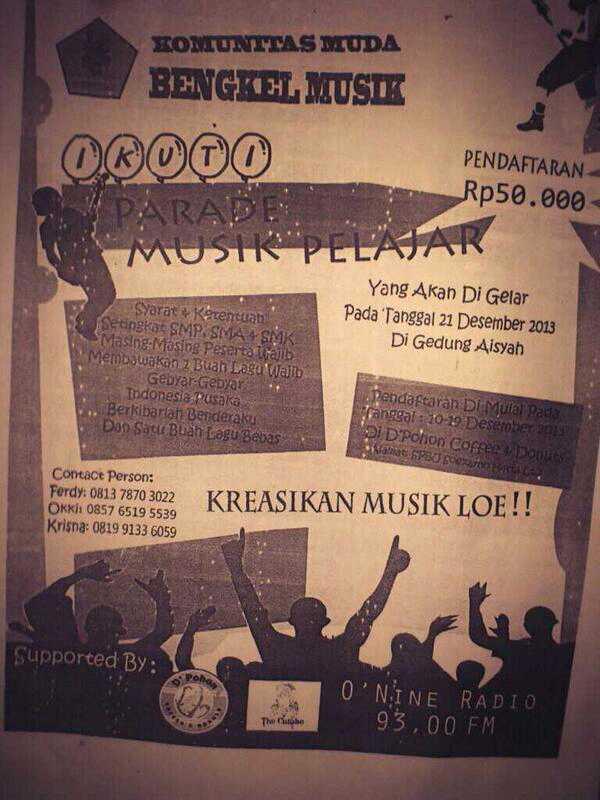 KOMUNITAS MUDA
BENGKEL MUSIK
IKUTI
PARADE
MUSIK PELAJAR
PENDAFTARAN
Rp50.000
Yang Akan Di Gelar
Pada Tanggal 21 Desember 2013
Di Gedung Aisyah
Syarat & Ketentuan
Setingkat SMP, SMA & SMK
Masing-Masing Peserta Wajib
Membawakan 2 Buah Lagu Wajib
Gebyar-Gebyar
Indonesia Pusaka
Berkibarlah Benderaku
Dan Satu Buah Lagu Bebas
Pendaftaran Di Mulai Pada
Tanggal : 10-19 Desember 2013
Di D'Pohon Coffee & Donuts
Alamat: SPBU
Contact Person:
Ferdy: 0813 7870 3022
Okki: 0857 6519 5539
Krisna: 0819 9133 6059
KREASIKAN MUSIK LOE!!
Supported By:
D'Pohon
The
O'NINE RADIO
93,00 FM